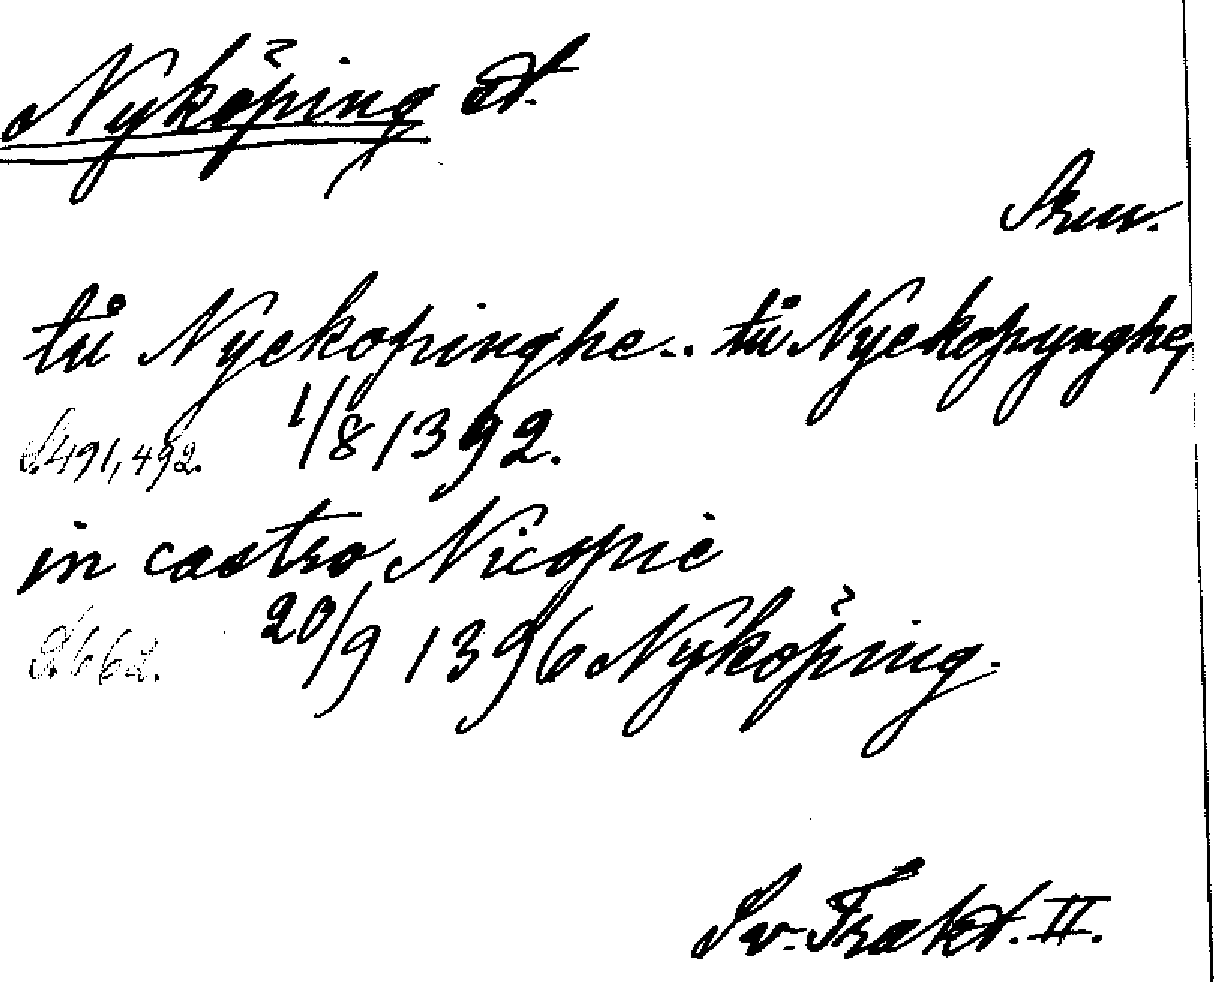 Nyköping st.
Srm.
tů Nyckopinghe.. tů Nyckopynghe,
S. 491, 492. 1/8 1392.
in castro Nicopie
S. 662. 20/9 1396 Nyköping.
Sv. Trakt. II.